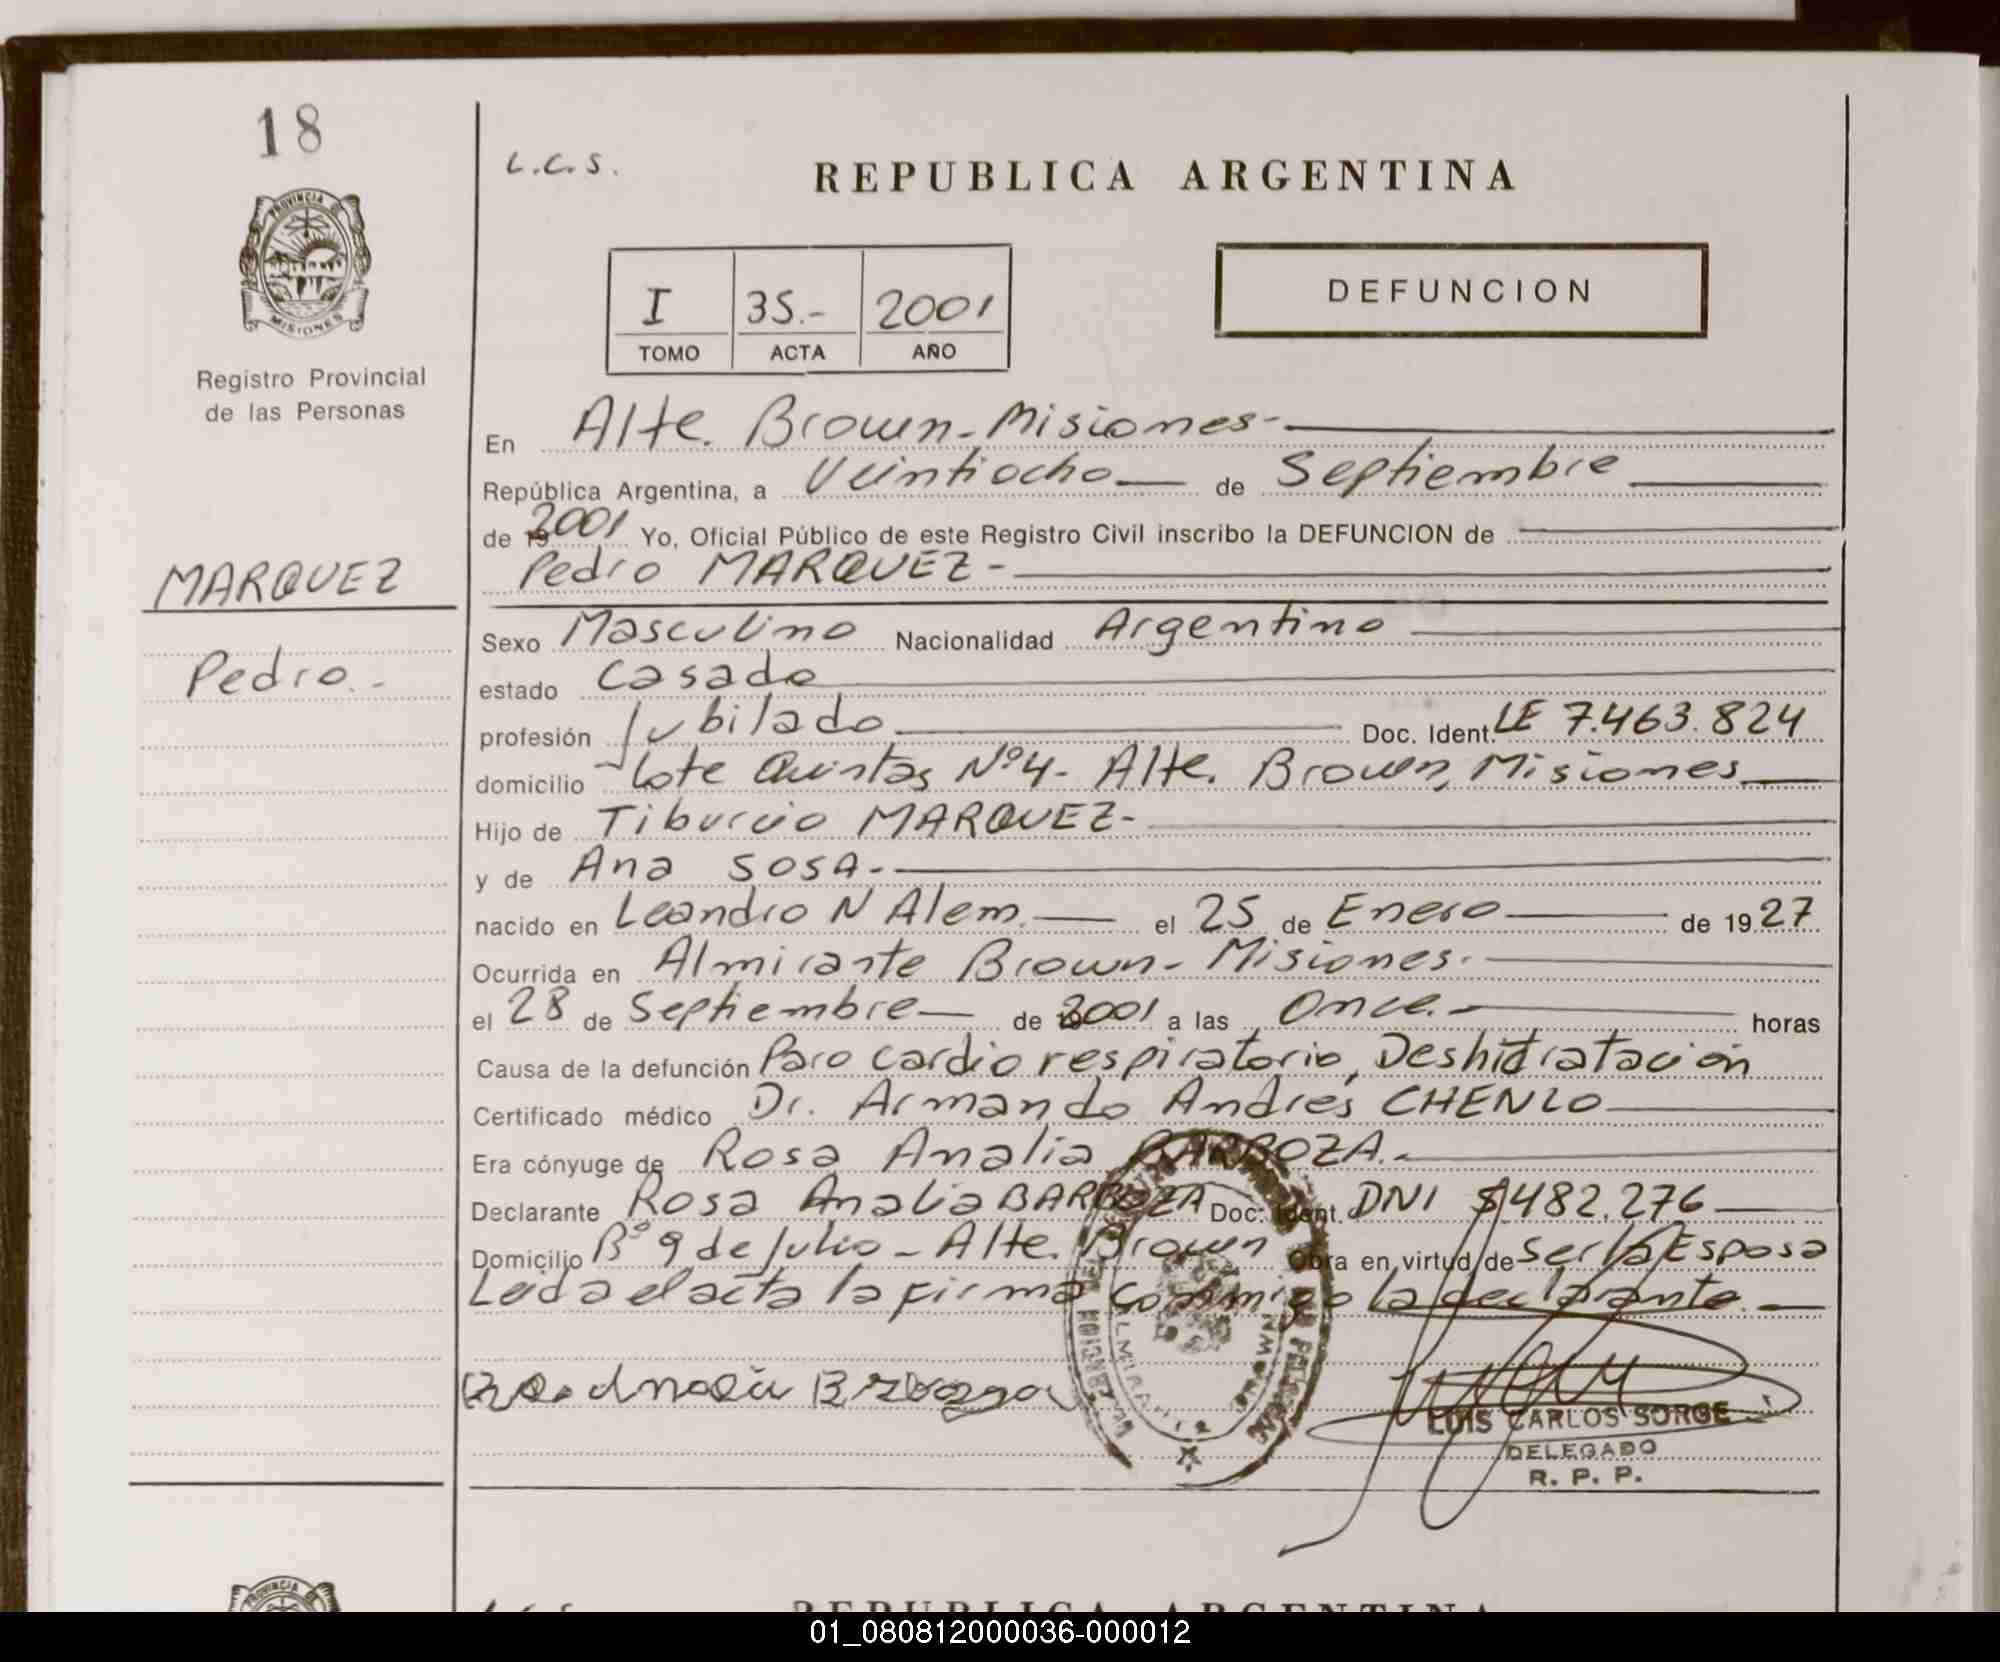 18
L.C.S.
REPUBLICA ARGENTINA
PROVINCIA DE
MISIONES
Registro Provincial
de las Personas
I 35.- 2001
TOMO ACTA AÑO
DEFUNCION
En Alte. Brown - Misiones -
República Argentina, a Veintiocho de Septiembre
de 2001 Yo, Oficial Público de este Registro Civil inscribo la DEFUNCION de
MARQUEZ
Pedro MARQUEZ -
Sexo Masculino Nacionalidad Argentino
Pedro.-
estado Casado
profesión Jubilado Doc. Ident. LE 7.463.824
domicilio Lote Quintas Nº 4 - Alte. Brown, Misiones
Hijo de Tiburcio MARQUEZ -
y de Ana SOSA -
nacido en Leandro N Alem. el 25 de Enero de 1927
Ocurrida en Almirante Brown - Misiones.
el 28 de Septiembre de 2001 a las Once. horas
Causa de la defunción Paro cardio respiratorio, Deshidratación
Certificado médico Dr. Armando Andres CHENLO
Era cónyuge de Rosa Analia BARBOZA.-
Declarante Rosa Analia BARBOZA Doc. Ident. DNI 482.276
Domicilio Bº 9 de Julio - Alte. Brown Obra en virtud de ser la Esposa
Leida el acta la firma conmigo la declarante.
LUIS CARLOS SORGE
DELEGADO
R. P. P.
L.C.S.
REPUBLICA ARGENTINA
01_080812000036-000012